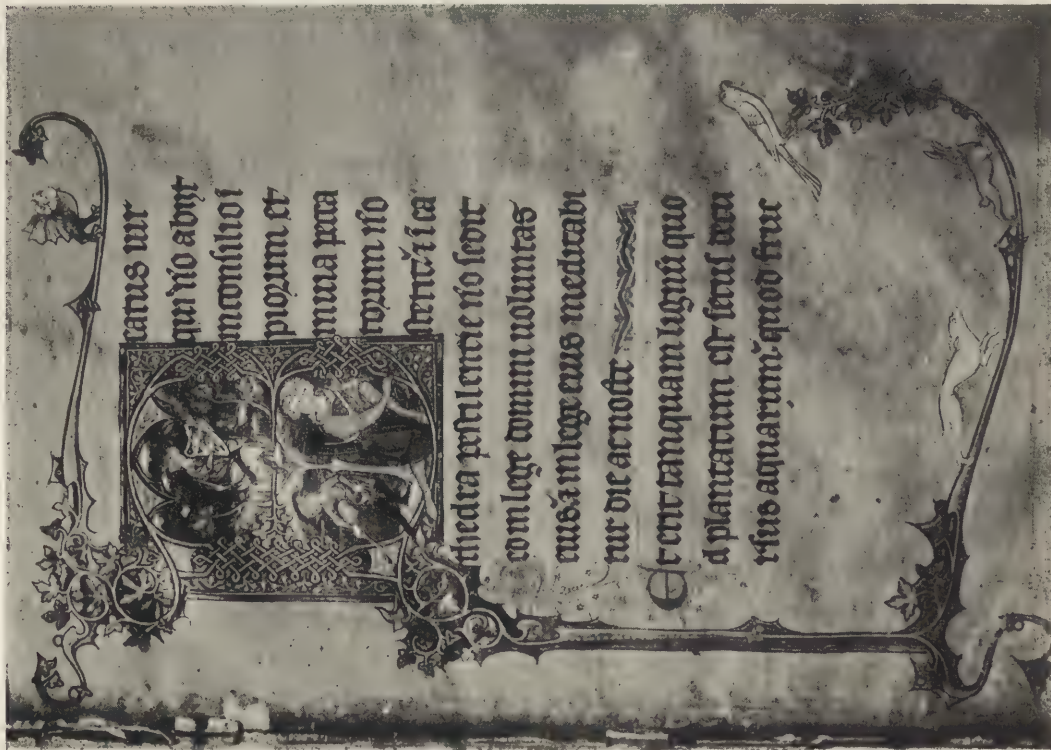 eatus uir
qui nō abijt
in consilio i
piorum et
in uia pecca
torum nō
stetit & ī ca
thedra pestilentie nō sedit
ed in lege domini uoluntas
eius & in lege eius meditabi
tur die ac nocte
Et erit tanquam lignū quo
d plantatum est secus decu
rsus aquarum quod fruc